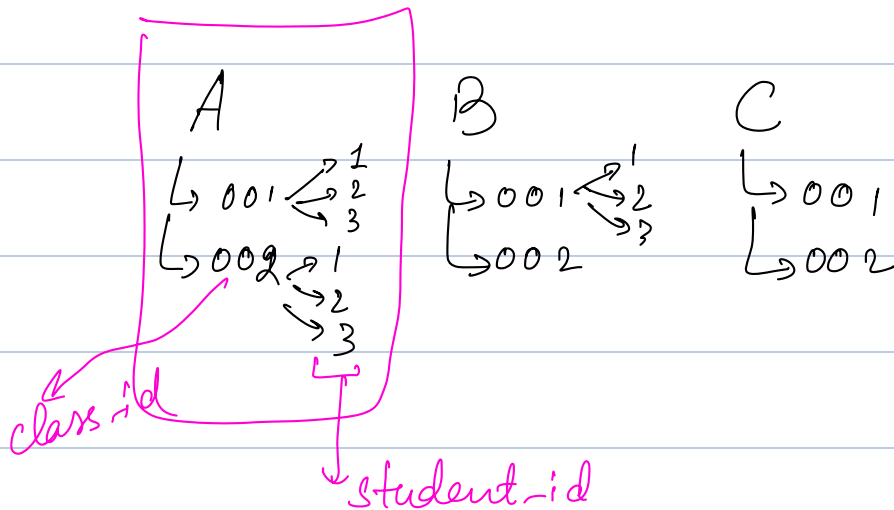 A B C
1
001 2
3
002 1
2
3
1
001 2
3
002
001
002
class_id
student_id